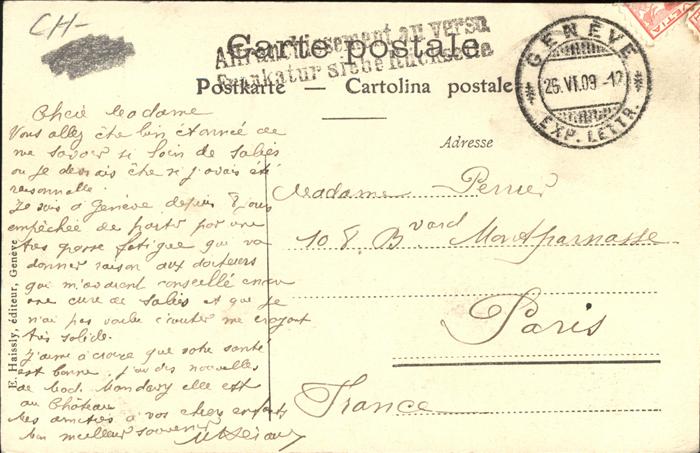 CH-
Carte postale
Affranchissement au verso
Frankatur siehe Rückseite
Postkarte — Cartolina postale
GENÈVE
25.VI.09.-12
EXP. LETTR.
Adresse
Chère Madame
Vous allez être bien étonnée de
me savoir si loin de Salies
où je devrais être si j'avais été
raisonnable.
Je suis à Genève depuis 8 jours
empêchée de partir par une
très grosse fatigue qui va
donner raison aux docteurs
qui m'avaient conseillé encore
une cure de Salies et que je
n'ai pas voulu écouter me croyant
très solide.
J'aime à croire que votre santé
est bonne. J'ai des nouvelles
de Mad. elle est
au Château
Mes amitiés à vos chers enfants
bon meilleur souvenir
Madame Perrier
108. Bvard Montparnasse
Paris
France
E. Haissly, éditeur, Genève